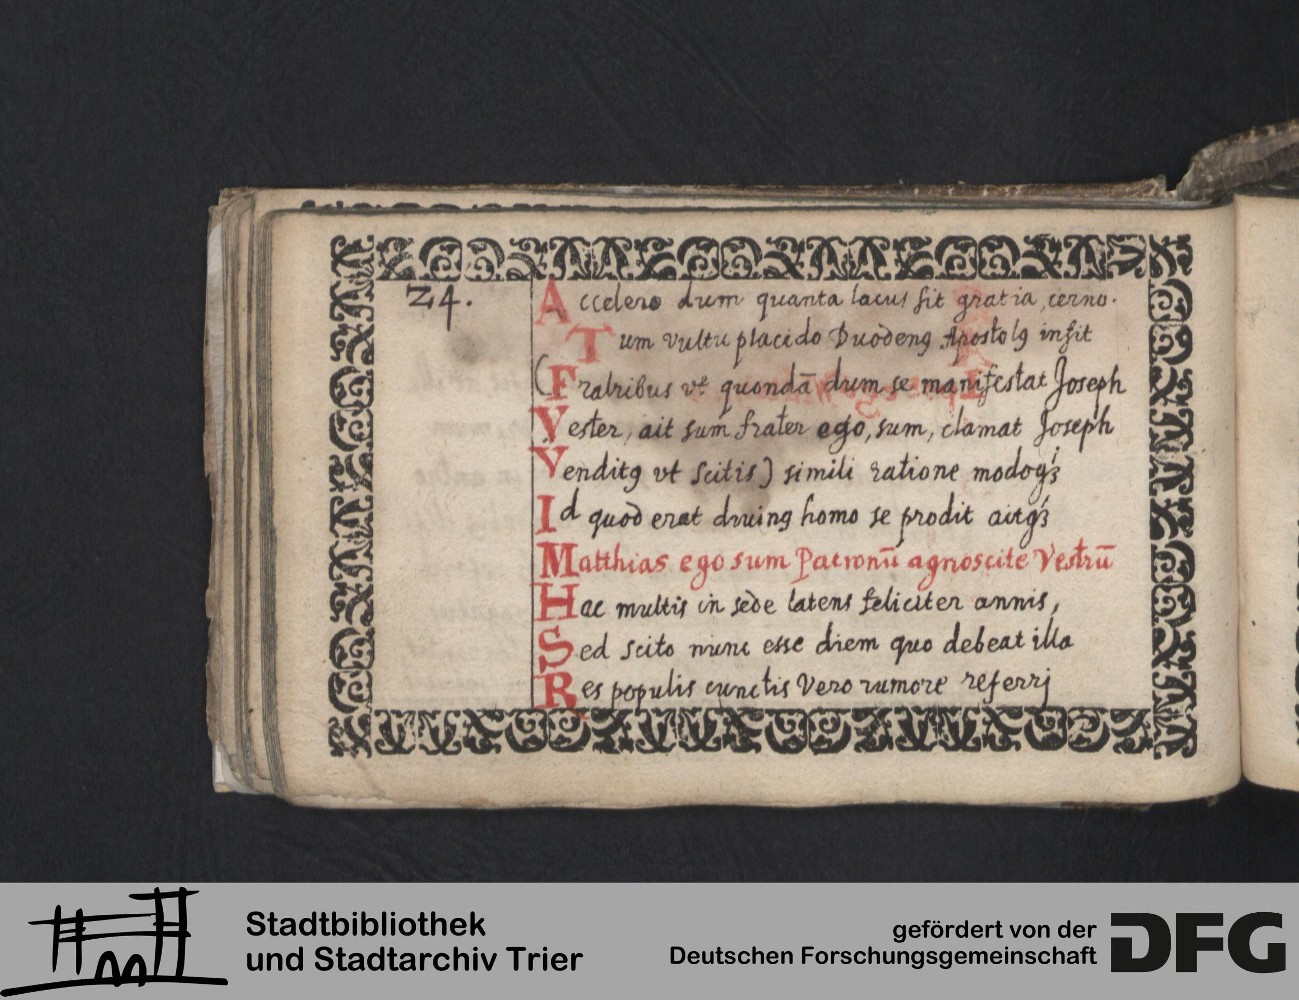 24.
Accelero dum quanta lacus sit gratia, cerno.
Tum vultu placido Duodenꝰ Apostolꝰ insit
(Fratribus vt quondā dum se manifestat Joseph
Vester, ait sum frater ego, sum, clamat Joseph
Venditꝰ vt scitis) simili ratione modoqꝫ
Id quod erat diuinꝰ homo se prodit aitqꝫ
Matthias ego sum Patronū agnoscite Vestrū
Hac multis in sede latens feliciter annis,
Sed scito nunc esse diem quo debeat illa
Res populis cunctis Vero rumore referrj
Stadtbibliothek
und Stadtarchiv Trier
gefördert von der
Deutschen Forschungsgemeinschaft
DFG